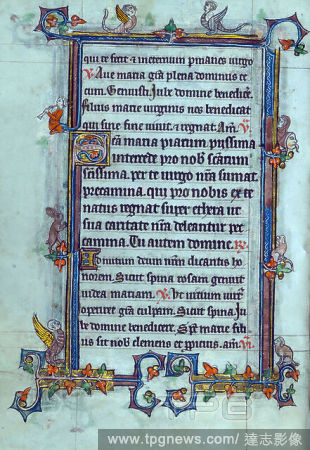 qui te fecit & ineternum permanes virgo
V Ave maria grã plena dominus te
cum. Genuisti. Jube domine benedicere.
Filius marie virginis nos benedicat
qui sine fine vivit. & regnat. Am. V
Scã maria piarum piissima
intercede pro nob scãrum
scissima. per te virgo nrãm sumat
precamina. qui pro nobis ex te
natus regnat super ethera ut
sua caritate nrãm deleantur pec
camina. Tu autem domine. R
nrãm dicantis ho
norem. Sicut spina rosam genuit
iudea mariam. V Ut vitium
operiret grã culpam. Sicut spina. Ju
be domine benedicere. marie fili
us sit nob clemens et ppicius. am. V
TPG
www.tpgnews.com / 達志影像